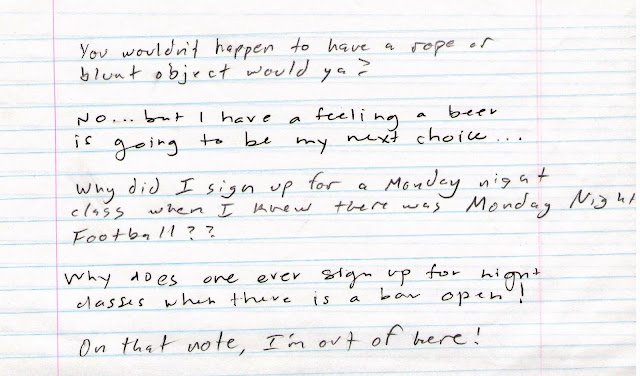 You wouldn't happen to have a rope or
blunt object would ya?
No... but I have a feeling a beer
is going to be my next choice...
Why did I sign up for a Monday night
class when I knew there was Monday Night
Football??
Why does one ever sign up for night
classes when there is a bar open!
On that note, I'm out of here!